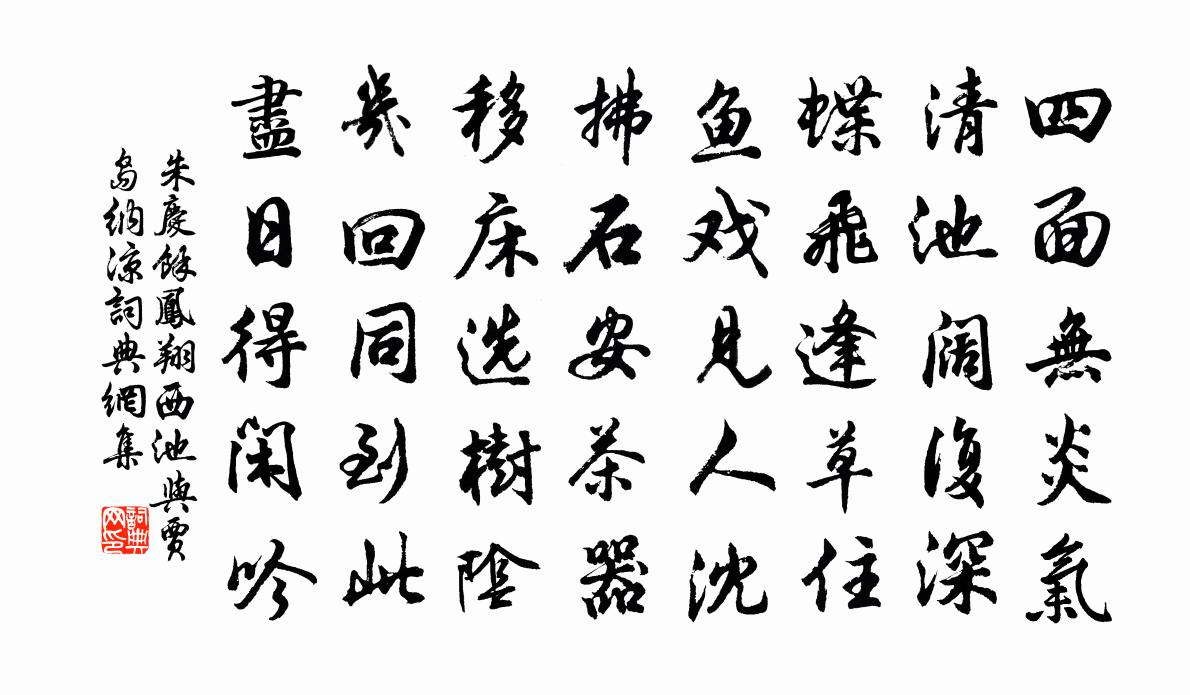 四面無炎氣
清池闊復深
蝶飛逢草住
鱼戏見人沈
拂石安茶器
移床选樹陰
幾回同到此
盡日得閑吟
朱慶餘鳳翔西池與賈
島納涼詞典網集
詞典网印